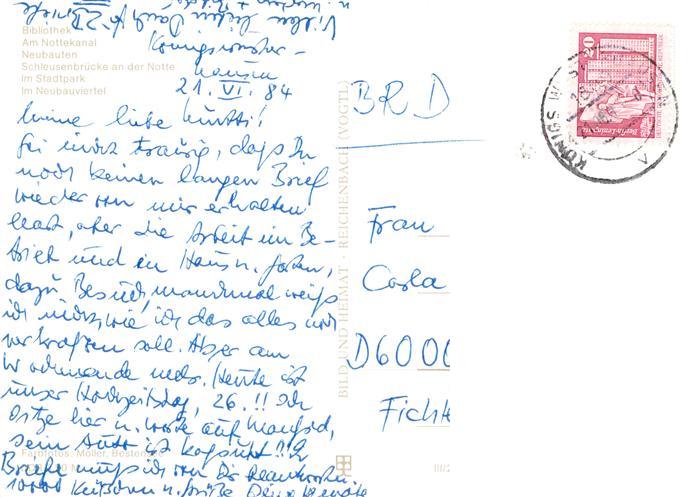 Vielen lieben Dank f. 2 Briefe
Bibliothek
Am Nottekanal
Neubauten
Schleusenbrücke an der Notte
Im Stadtpark
Im Neubauviertel
Königswuster-
hausen
21. VI. 84
Meine liebe Mutti!
Sei nicht traurig, daß Du
noch keinen langen Brief
wieder von mir erhalten
hast, aber die Arbeit im Be-
trieb und in Haus u. Garten,
dazu Besuch, manchmal weiß
ich nicht, wie ich das alles noch
verkraften soll. Aber am
Wochenende mehr. Heute ist
unser Hochzeitstag, 26.!! Ich
sitze hier u. warte auf Manfred,
sein Auto ist kaputt!! 2
Briefe muß ich von Dir beantworten
10000 Küßchen u. Grüße Deine
Farbfotos: Möller,
BILD UND HEIMAT · REICHENBACH (VOGTL)
III/2
BRD
Frau
Carla
D600
Ficht
20
Berlin-Leninplatz
KÖNIGS W